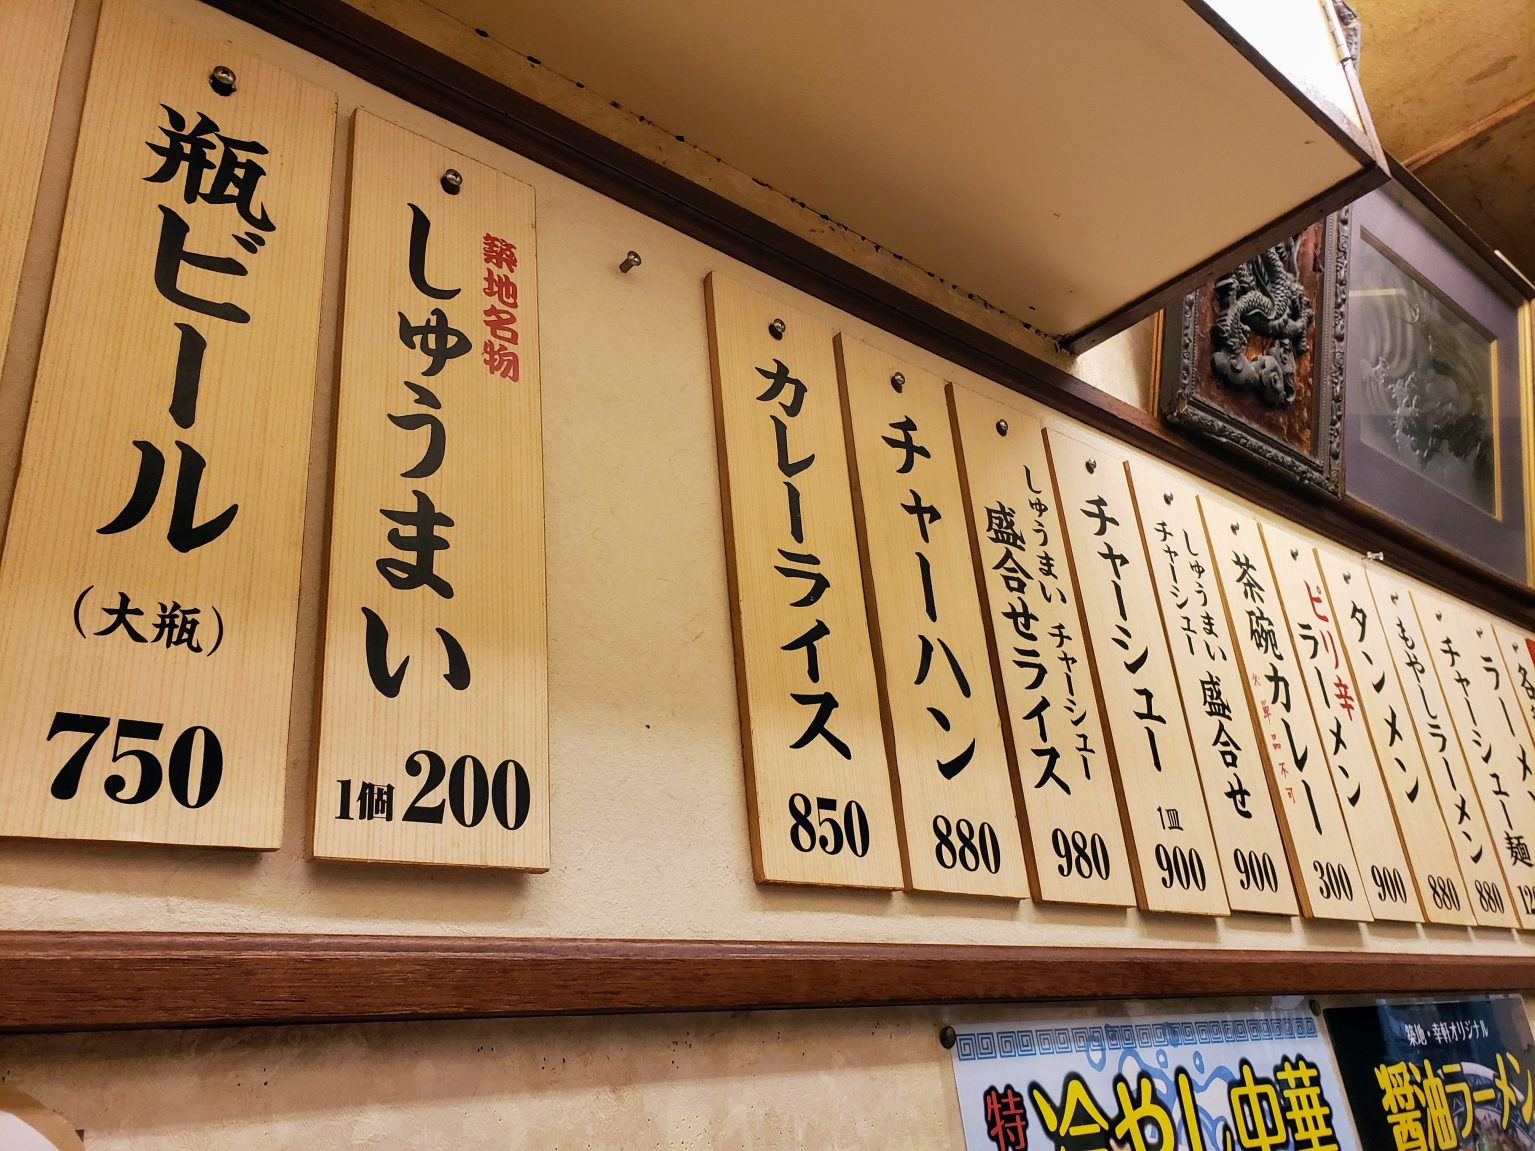 瓶ビール
(大瓶)
750
築地名物
しゅうまい
1個200
カレーライス
850
チャーハン
880
しゅうまい チャーシュー
盛合せライス
980
チャーシュー
1皿
900
しゅうまい
チャーシュー
盛合せ
900
茶碗カレー
※単品不可
300
ピリ辛
ラーメン
900
タンメン
880
もやしラーメン
880
チャーシューメン
ラーメン
チャーシュー麺
特
冷やし中華
築地・幸軒オリジナル
醤油ラーメン